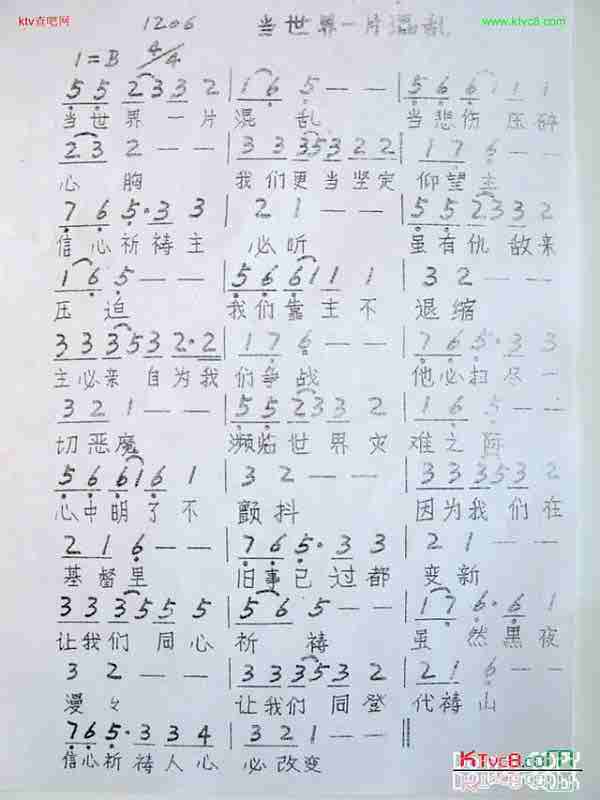 ktv查吧网
www.ktvc8.com
1206 当世界一片混乱
1=B 4/4
5 5 2 3 3 2 | 1 6 5 — — | 5 6 6 1 1 1
当世界一片 混乱 当悲伤压碎
2 3 2 — — | 3 3 3 5 3 2 2 | 1 7 6 — —
心胸 我们更当坚定 仰望主
7 6 5 · 3 3 | 2 1 — — | 5 5 2 3 3 2
信心祈祷主 必听 虽有仇敌来
1 6 5 — — | 5 6 6 1 1 1 | 3 2 — —
压迫 我们靠主不 退缩
3 3 3 5 3 2 · 2 | 1 7 6 — — | 7 6 5 · 3 3
主必亲自为我 们争战 他必扫尽一
3 2 1 — — | 5 5 2 3 3 2 | 1 6 5 — —
切恶魔 濒临世界灾 难之际
5 6 6 1 6 1 | 3 2 — — | 3 3 3 5 3 2
心中明了不 颤抖 因为我们在
2 1 6 — — | 7 6 5 · 3 3 | 2 1 — —
基督里 旧事已过都 变新
3 3 3 5 5 5 | 5 6 5 — — | 1 7 6 · 6 1
让我们同心 祈祷 虽然黑夜
3 2 — — | 3 3 3 5 3 2 | 2 1 6 — —
漫々 让我们同登 代祷山
7 6 5 · 3 3 4 | 3 2 1 — — ||
信心祈祷人心 必改变
KTvc8.com